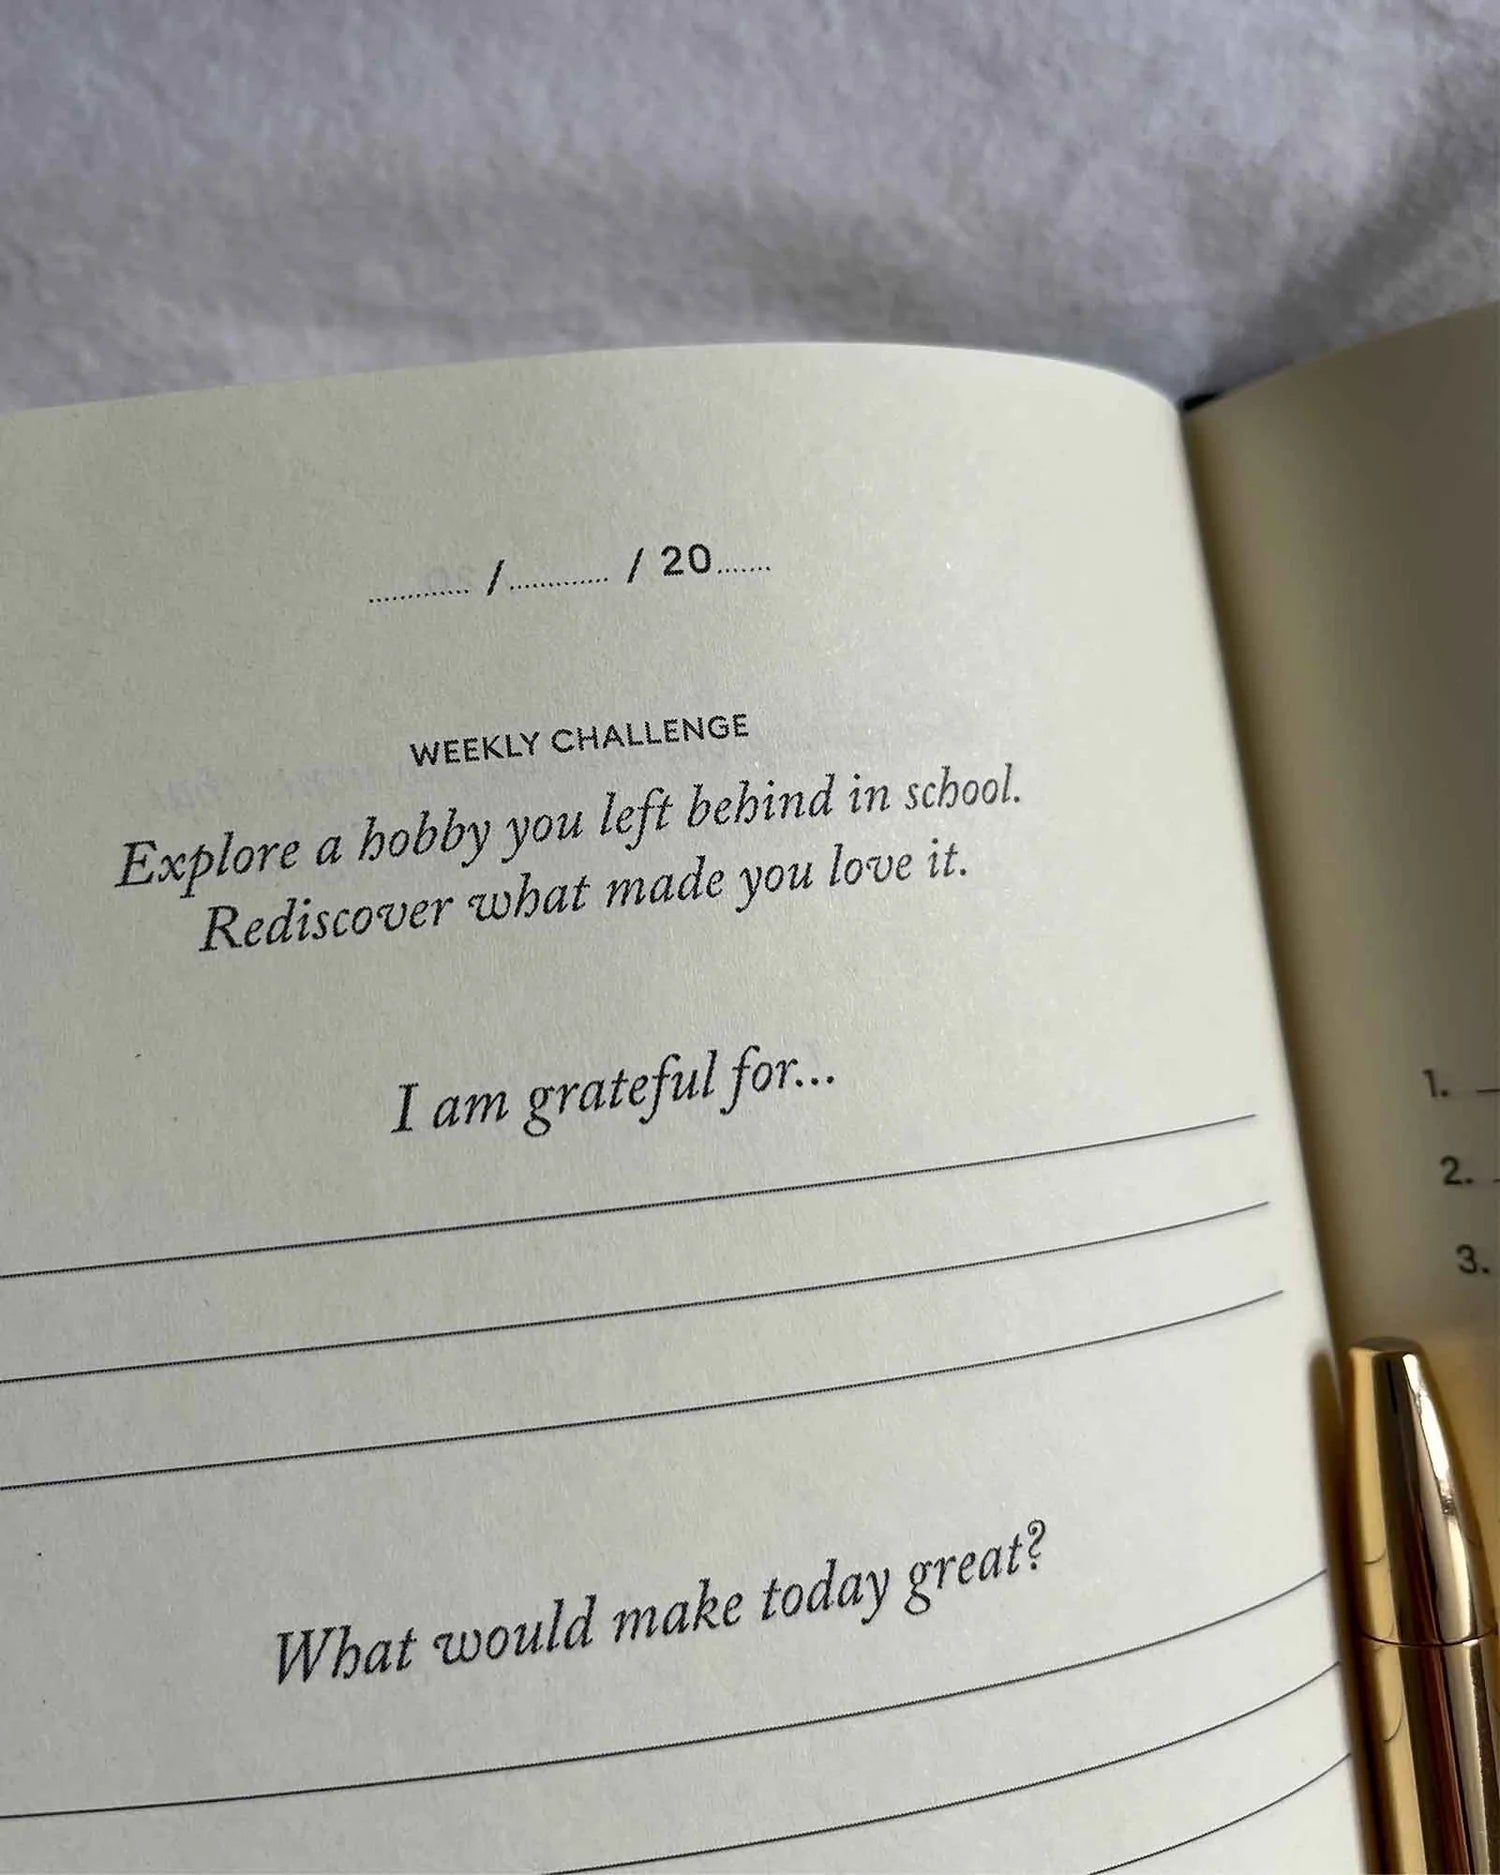 ............ / ............ / 20.......
WEEKLY CHALLENGE
Explore a hobby you left behind in school.
Rediscover what made you love it.
I am grateful for...
What would make today great?
1.
2.
3.